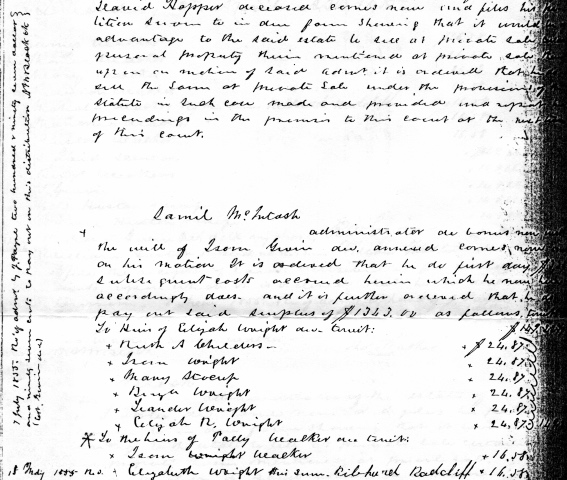 David Hopper deceased comes now and files his pe
tition sworn to in due form shewing that it would
advantage to the said estate to sell at private sale
personal property therein mentioned at private sale
upon on motion of said admr it is ordered that he
sell the same at private sale under the provision of
statute in such case made and provided and report
proceedings in the premises to this court at the next
of this court.
Samil McIntosh
administrator de bonis non
the will of Isom Gwin dec. annexed comes now
on his motion It is ordered that he do first day
subsequent costs accrued herein which he now
accordingly does. and it is further ordered that he
pay out said surplus of $1343.00 as follows,
To Heirs of Elijah Wright dec. towit:
+ Ruth A Childers - + $24.87
+ Isom Wright + 24.87
+ Mary Stoup + 24.87
+ Wright + 24.87
+ Leander Wright + 24.87
+ Elijah R. Wright + 24.87
To the heirs of Polly Walker dec. towit:
+ Isom Walker + 16.58
18 May 1855 Elizabeth Wright this sum. Radcliff + 16.58
7 July 1855. Rec of admr by J. Payne two hundred & ninety seven dollars
and ninety seven cents to pay out on this distribution